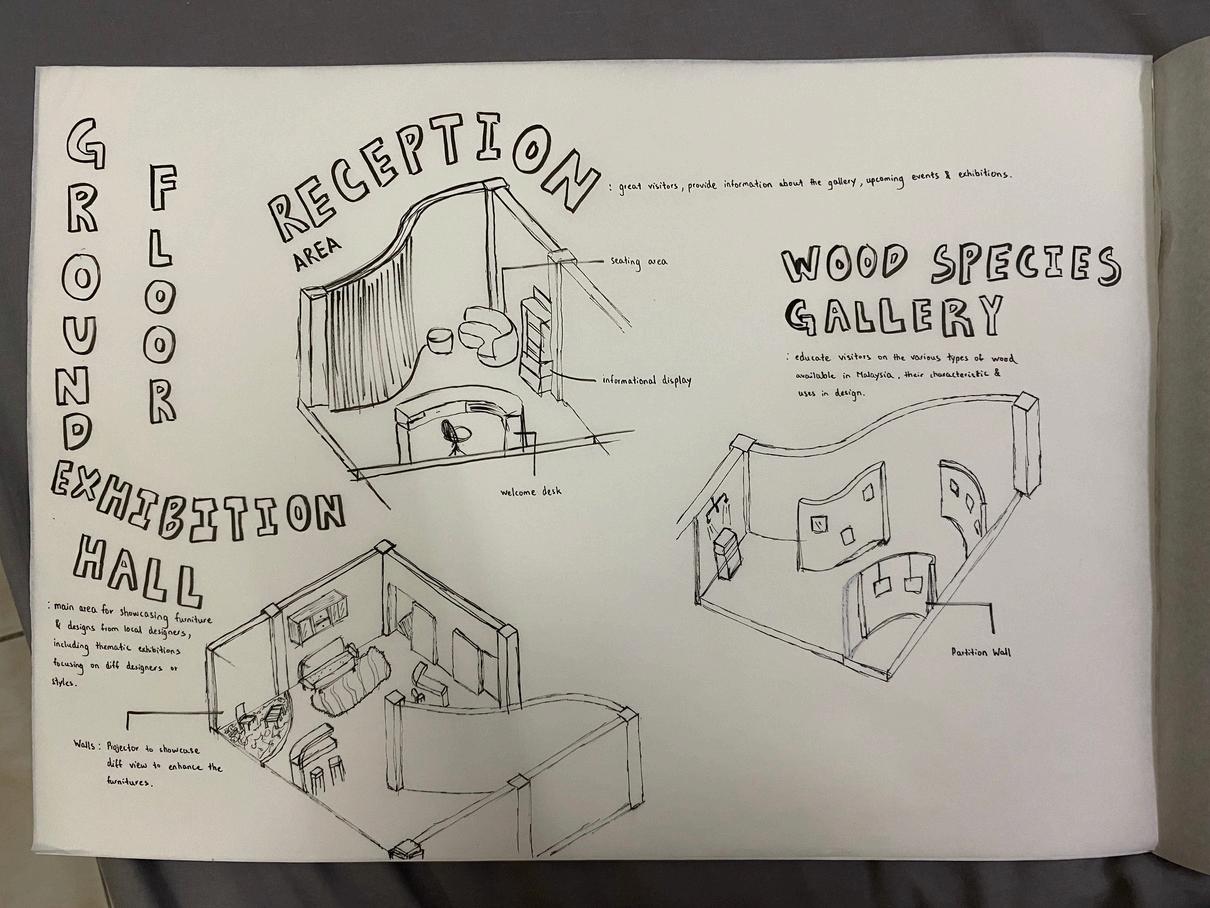 GROUND
FLOOR
RECEPTION
AREA
: great visitors, provide information about the gallery, upcoming events & exhibitions.
seating area
informational display
welcome desk
WOOD SPECIES
GALLERY
: educate visitors on the various types of wood
available in Malaysia, their characteristic &
uses in design.
Partition Wall
EXHIBITION
HALL
: main area for showcasing furniture
& designs from local designers,
including thematic exhibitions
focusing on diff designers or
styles.
Walls: Projector to showcase
diff view to enhance the
furnitures.